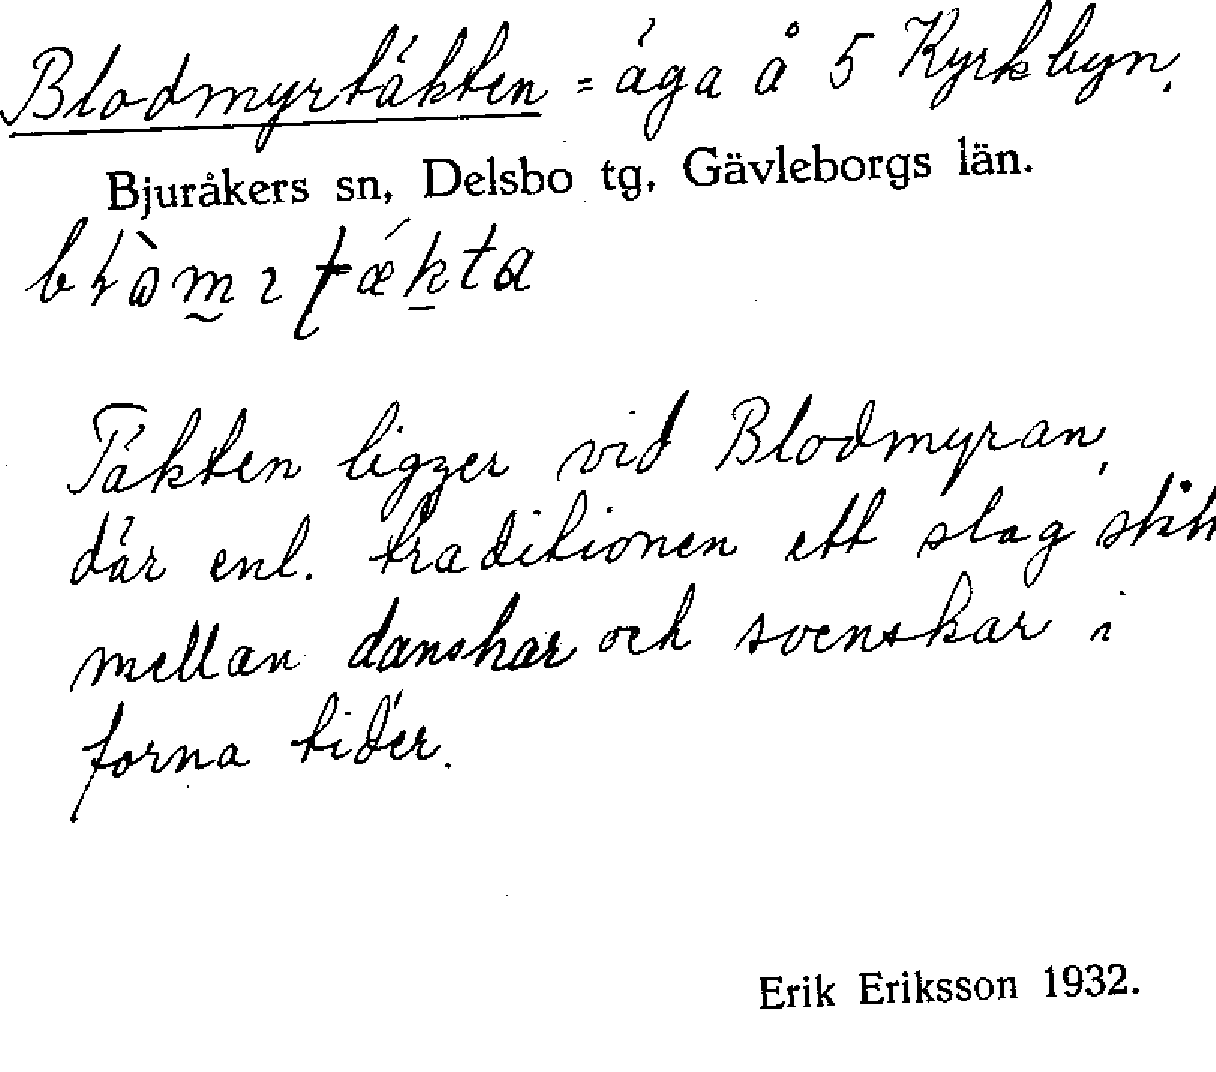 Blodmyrtäkten = äga å 5 Kyrkbyn.
Bjuråkers sn, Delsbo tg, Gävleborgs län.
Täkten ligger vid Blodmyran,
där enl. traditionen ett slag stått
mellan danskar och svenskar i
forna tider.
Erik Eriksson 1932.